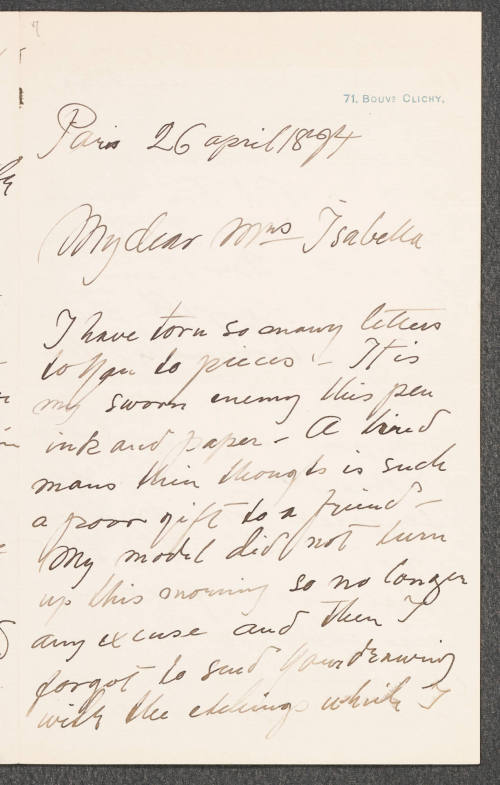 71, BOUVD CLICHY,
Paris 26 april 1894
My dear Mrs Isabella
I have torn so many letters
to you to pieces - It is
my sworn enemy this pen
ink and paper - A tired
mans thin thoughts is such
a poor gift to a friend -
My model did not turn
up this morning so no longer
any excuse and then I
forgot to send your drawing
with the etchings which I